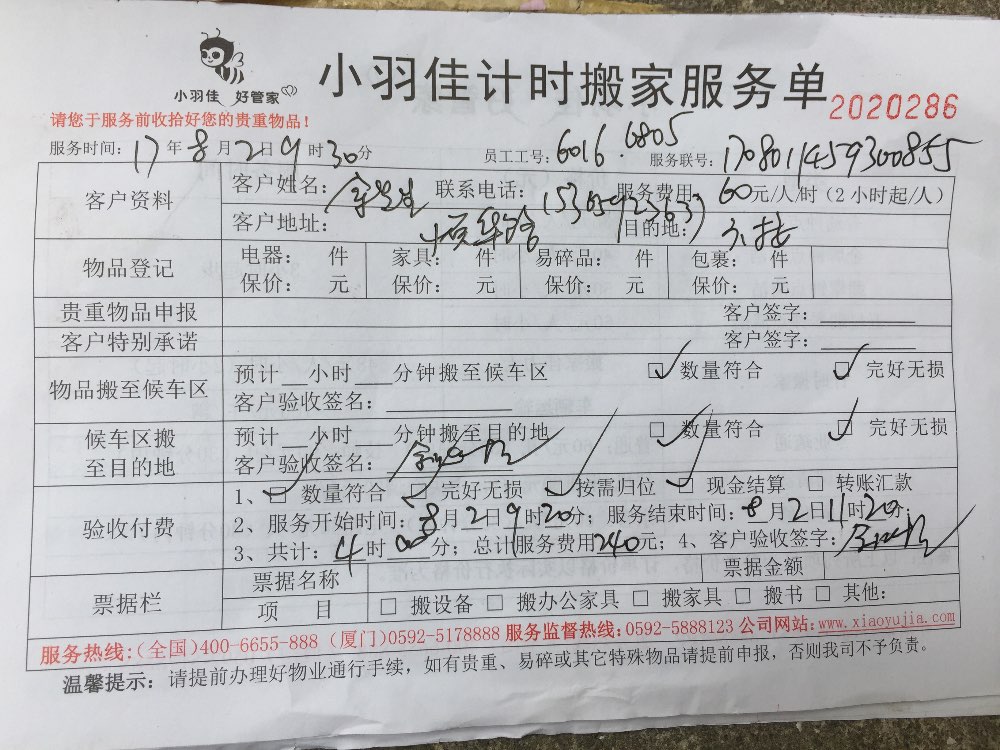 小羽佳 好管家
小羽佳计时搬家服务单 2020286
请您于服务前收拾好您的贵重物品!
服务时间: 17年8月2日9时30分 员工工号: 6016 0805 服务联号: 170801145930085​5
客户资料 客户姓名: 余先生 联系电话: 服务费用: 60元/人/时(2小时起/人)
客户地址: 目的地:
物品登记 电器: 件 家具: 件 易碎品: 件 包裹: 件
保价: 元 保价: 元 保价: 元 保价: 元
贵重物品申报 客户签字:
客户特别承诺 客户签字:
物品搬至候车区 预计__小时___分钟搬至候车区 ☑ 数量符合 ☑ 完好无损
客户验收签名:
候车区搬至目的地 预计__小时___分钟搬至目的地 ☑ 数量符合 ☑ 完好无损
客户验收签名:
验收付费 1、☑ 数量符合 ☑ 完好无损 ☑ 按需归位 ☑ 现金结算 □ 转账汇款
2、服务开始时间: 8月2日9时20分; 服务结束时间: 8月2日11时20分;
3、共计: 4时00分; 总计服务费用240元; 4、客户验收签字:
票据栏 票据名称 票据金额
项 目 □ 搬设备 □ 搬办公家具 □ 搬家具 □ 搬书 □ 其他:
服务热线:(全国)400-6655-888 (厦门)0592-5178888 服务监督热线:0592-5888123 公司网站:www.xiaoyujia.com
温馨提示: 请提前办理好物业通行手续, 如有贵重、易碎或其它特殊物品请提前申报, 否则我司不予负责。